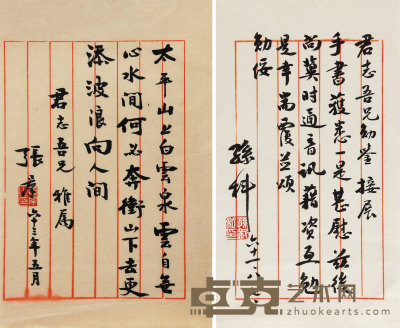 太平山上白雲泉雲自無
心水間何必奔衝山下去更
添波浪向人間
君志吾兄雅属
張羣
六十三年五月
君志吾兄勛鑒接展
手書獲悉一是甚慰茲後
尚冀時通音訊藉資互勉
是幸耑覆並頌
勛綏
孫科
六十一、八、
卓克艺术网
http://www.zhuokearts.com